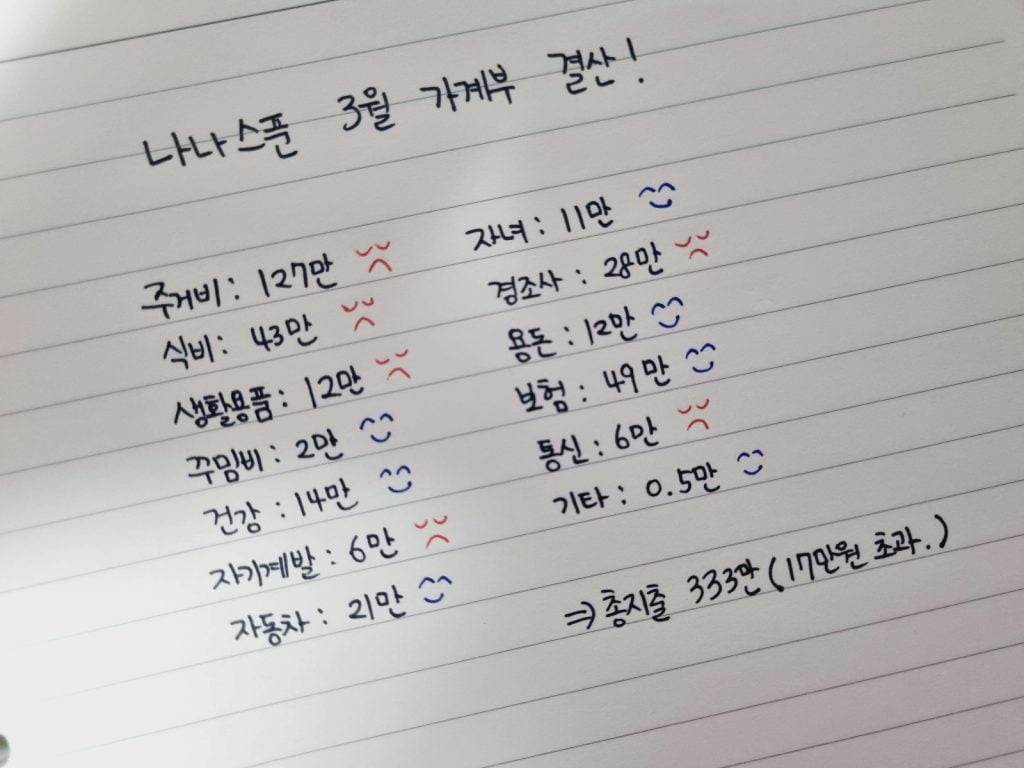 나나스푼 3월 가계부 결산!
주거비: 127만
식비: 43만
생활용품: 12만
꾸밈비: 2만
건강: 14만
자기계발: 6만
자동차: 21만
자녀: 11만
경조사: 28만
용돈: 12만
보험: 49만
통신: 6만
기타: 0.5만
⇒ 총지출 333만(17만원 초과.)